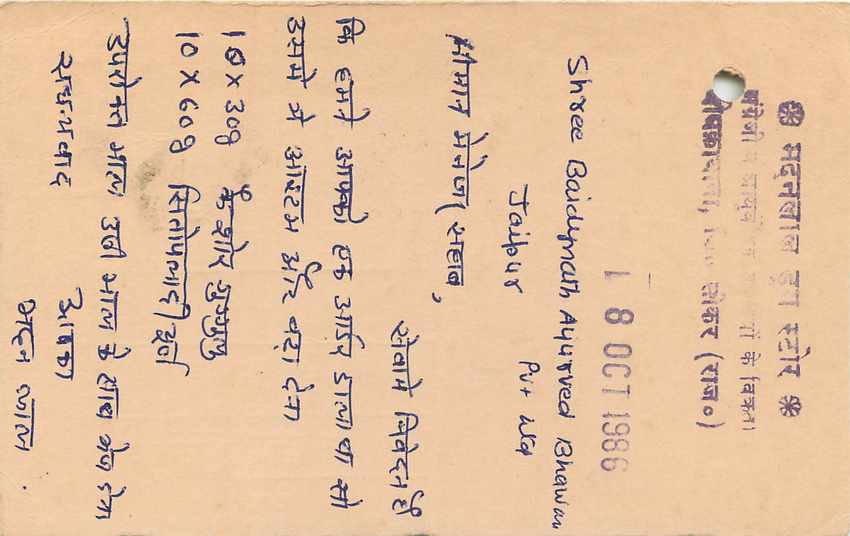 ❁ मदनलाल ड्रग स्टोर ❁
अंग्रेजी व आयुर्वेदिक के विक्रेता
सीकर (राज०)
18 OCT 1986
Shree Baidynath Ayurved Bhawan
Pvt Ltd
Jaipur
श्रीमान मैनेजर साहब,
सेवामे निवेदन है
कि हमने आपको एक आर्डर डाला था सो
उसमे ये आइटम और बढ़ा देना
10 X 30g कैशोर गुग्गुलु
10 X 60g सितोपलादी चूर्ण
उपरोक्त माल उसी माल के साथ भेज देना
सधन्यवाद
आपका
मदन लाल